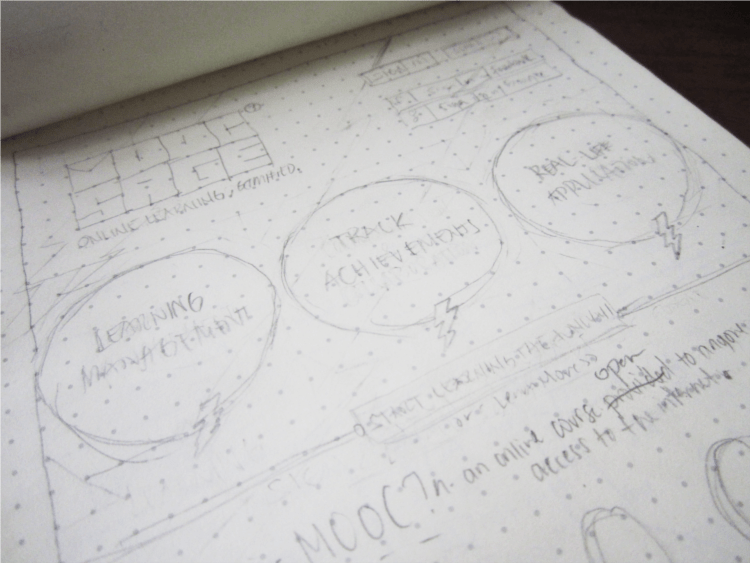 MOOC
CAGE
ONLINE LEARNING, GAMIFIED.
LEARNING
MANAGEMENT
TRACK
ACHIEVEMENTS
REAL-LIFE
APPLICATION
START LEARNING THE FUN WAY!
or Learn More >>
open
MOOC? n. an online course provided to anyone
access to the internet.